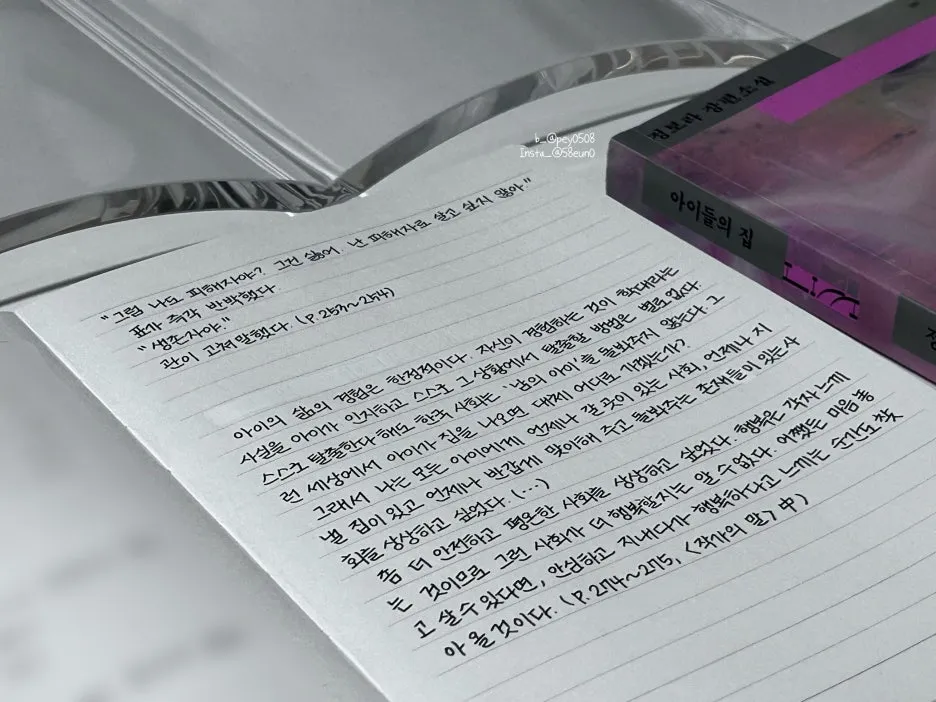 b_@pey0508
Insta_@58eun0
정보라 장편소설
아이들의 집
"그럼 나도 피해자야? 그건 싫어. 난 피해자로 살고 싶지 않아."
표가 즉각 반박했다.
"생존자야."
관이 고쳐 말했다. (P.253~254)
아이의 삶의 경험은 한정적이다. 자신이 경험하는 것이 학대라는
사실을 아이가 인지하고 스스로 그 상황에서 탈출할 방법은 별로 없다.
스스로 탈출한다 해도 한국 사회는 '남의 아이'를 돌봐주지 않는다. 그
런 세상에서 아이가 집을 나오면 대체 어디로 가겠는가?
그래서 나는 모든 아이에게 언제나 갈 곳이 있는 사회, 언제나 지
낼 집이 있고 언제나 반갑게 맞이해 주고 돌봐주는 존재들이 있는 사
회를 상상하고 싶었다. (…)
좀 더 안전하고 평온한 사회를 상상하고 싶었다. 행복은 각자 느끼
는 것이므로 그런 사회가 더 행복할지는 알 수 없다. 어쨌든 마음 놓
고 살 수 있다면, 안심하고 지내다가 행복하다고 느끼는 순간도 찾
아올 것이다. (P.274~275, <작가의 말> 中)